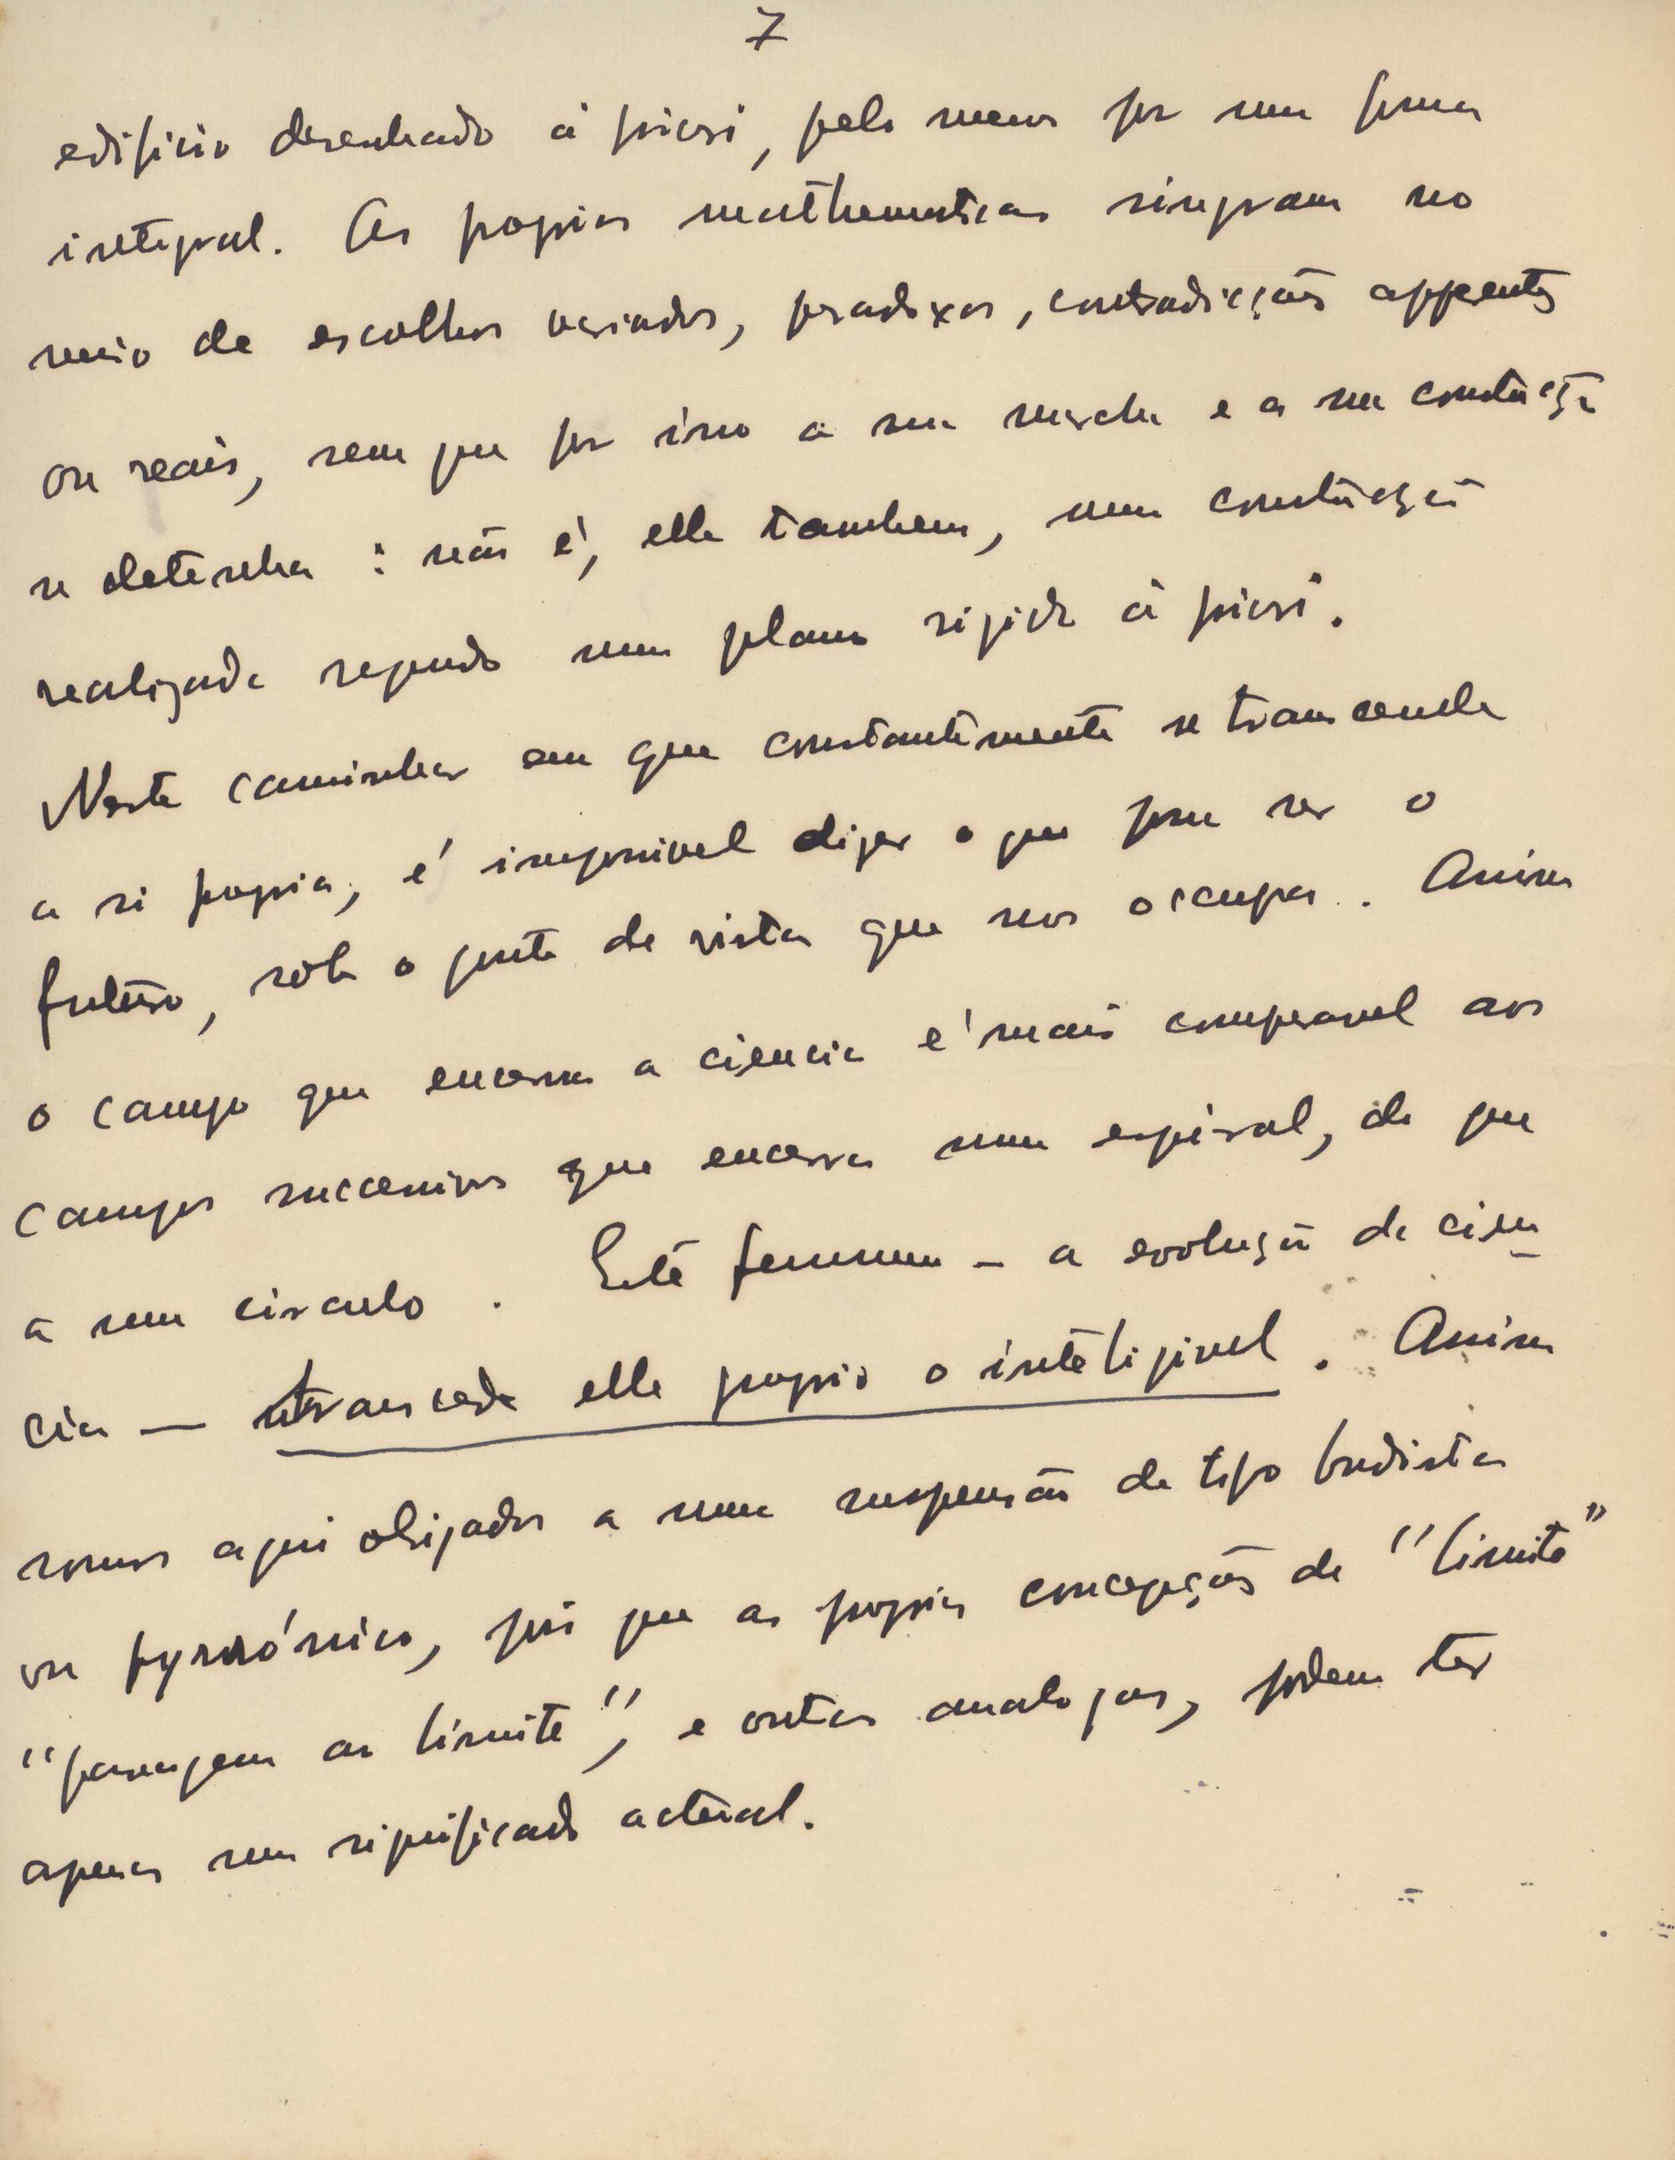 7
edificio desenhado á priori, pelo menos por uma forma
integral. As proprias mathematicas singram no
meio de escolhos variados, paradoxos, contradicções apparentes
ou reais, sem que por isso a sua marcha e a sua construcção
se detenha : não é, ella tambem, uma construcção
realizada segundo um plano rigido á priori.
Neste caminhar em que constantemente se transcende
a si propria, é impossivel dizer o que possa ser o
futuro, sob o ponto de vista que nos occupa. Assim
o campo que encerra a ciencia é mais comparavel aos
campos successivos que encerra uma espiral, do que
a um circulo. Este fenomeno – a evolução da cien
cia – transcede elle proprio o inteligivel. Assim
somos aqui obrigados a uma suspensão de tipo budista
ou pyrrónico, pois que as proprias concepções de "limite"
"passagem ao limite", e outras analogas, podem ter
apenas um significado actual.